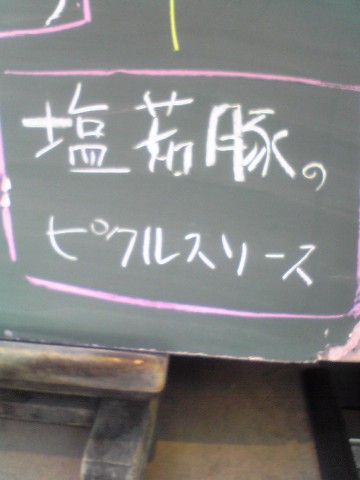 塩茹豚の
ピクルスソース